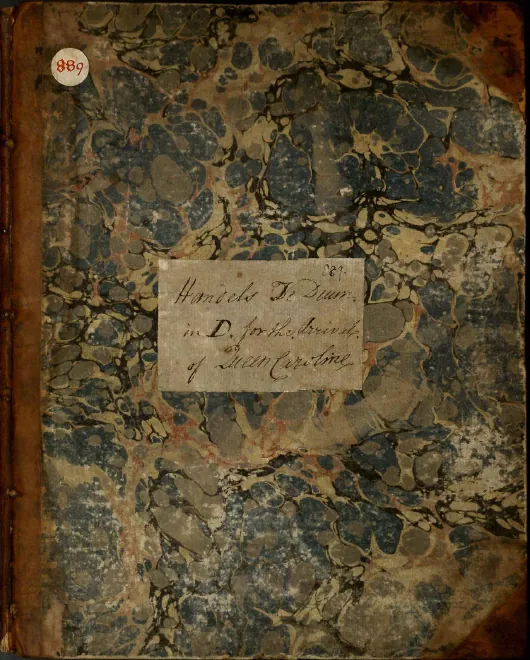 889
889.
Handels Te Deum.
in D. for the Arrival.
of Queen Caroline